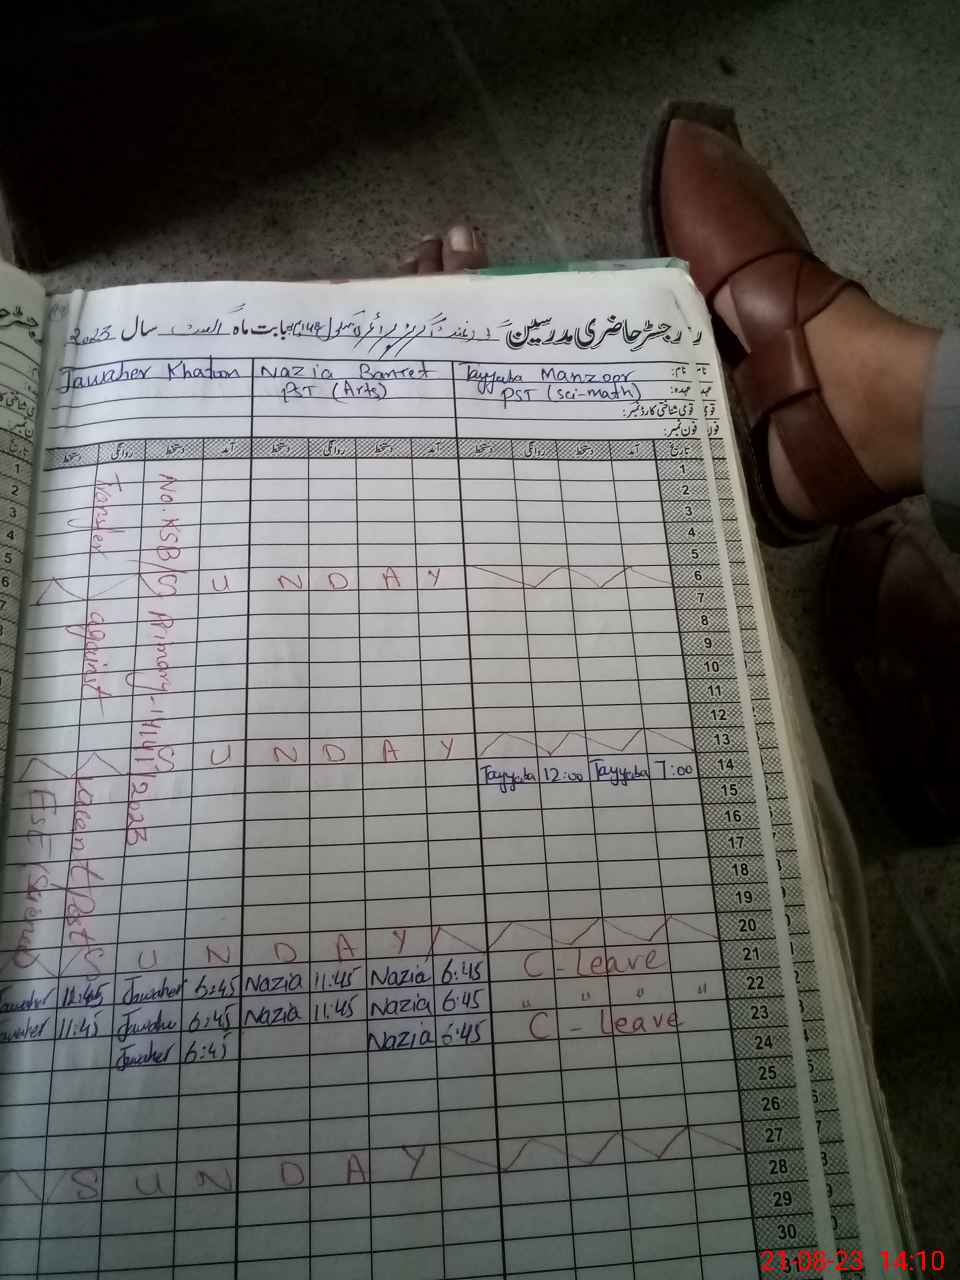 رجسٹر حاضری مدرسین گورنمنٹ گرلز پرائمری سکول بابت ماہ اگست سال 2023
نام: Tayyaba Manzoor Nazia Jawaher Khatoon
عہدہ: PST (Sci-math) PST (Arts)
قومی شناختی کارڈ نمبر:
فون نمبر:
تاریخ آمد دستخط روانگی دستخط آمد دستخط روانگی دستخط آمد دستخط روانگی دستخط
1
2
3
4
5
6
S U N D A Y
7
8
9
10
11
12
13
S U N D A Y
14
Tayyaba 12:00 Tayyaba 7:00
15
16
17
18
19
20
S U N D A Y
21
Jawaher 11:45 Jawaher 6:45 Nazia 11:45 Nazia 6:45 C - Leave
22
Jawaher 11:45 Jawaher 6:45 Nazia 11:45 Nazia 6:45 " " " "
23
Jawaher 6:45 Nazia 6:45 C - Leave
24
25
26
27
S U N D A Y
28
29
30
No. KSB/Primary-
2023
Transfer against
Post
21-08-23 14:10